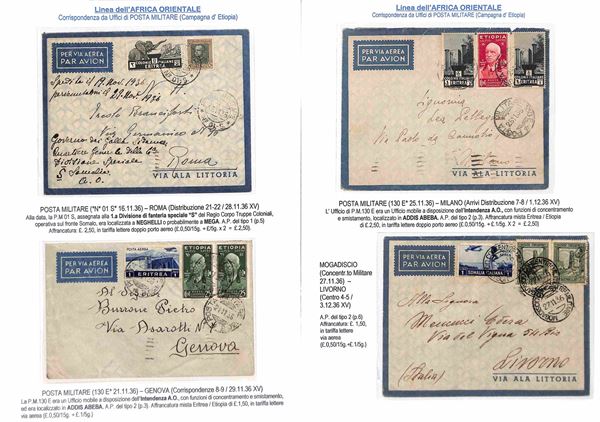 Linea dell'AFRICA ORIENTALE
Corrispondenza da Uffici di POSTA MILITARE (Campagna d' Etiopia)
PER VIA AEREA
PAR AVION
Roma
VIA ALA LITTORIA
POSTA MILITARE ("N° 01 S" 16.11.36) – ROMA (Distribuzione 21-22 / 28.11.36 XV)
Alla data, la P.M 01 S, assegnata alla 1.a Divisione di fanteria speciale "S" del Regio Corpo Truppe Coloniali,
operativa sul fronte Somalo, era localizzata a NEGHELLI o probabilmente a MEGA. A.P. del tipo 1 (p.5)
Affrancatura: £. 2,50, in tariffa lettere doppio porto aereo (£.0,50/15g. + £/5g. x 2 = £. 2,50)
PER VIA AEREA
PAR AVION
ERITREA
ETIOPIA
ETIOPIA
Burrone Pietro
Via Assarotti
Genova
POSTA MILITARE (130 E* 21.11.36) – GENOVA (Corrispondenze 8-9 / 29.11.36 XV)
La P.M.130 E era un Ufficio mobile a disposizione dell'Intendenza A.O., con funzioni di concentramento e smistamento,
ed era localizzato in ADDIS ABEBA. A.P. del tipo 2 (p.3). Affrancatura mista Eritrea / Etiopia di £ 1,50, in tariffa lettere
via aerea (£.0,50/15g. +£.1/5g.)
Linea dell'AFRICA ORIENTALE
Corrispondenza da Uffici di POSTA MILITARE (Campagna d' Etiopia)
PER VIA AEREA
PAR AVION
ETIOPIA
Signorina
VIA ALA LITTORIA
POSTA MILITARE (130 E* 25.11.36) – MILANO (Arrivi Distribuzione 7-8 / 1.12.36 XV)
L' Ufficio di P.M.130 E era un Ufficio mobile a disposizione dell'Intendenza A.O., con funzioni di concentramento
e smistamento, localizzato in ADDIS ABEBA. A.P. del tipo 2 (p.3). Affrancatura mista Eritrea / Etiopia
di £.2,50, in tariffa lettere doppio porto aereo (£.0,50/15g. + £.1/5g. x 2 = £.2,50)
MOGADISCIO
(Concentr.to Militare
27.11.36) –
LIVORNO
(Centro 4-5 /
3.12.36 XV)
A.P. del tipo 2 (p.6)
Affrancatura: £. 1,50,
in tariffa lettere
via aerea
(£.0,50/15g. +£.1/5g.)
PER VIA AEREA
PAR AVION
SOMALIA ITALIANA
Alla Signora
Livorno
(Italia)
VIA ALA LITTORIA